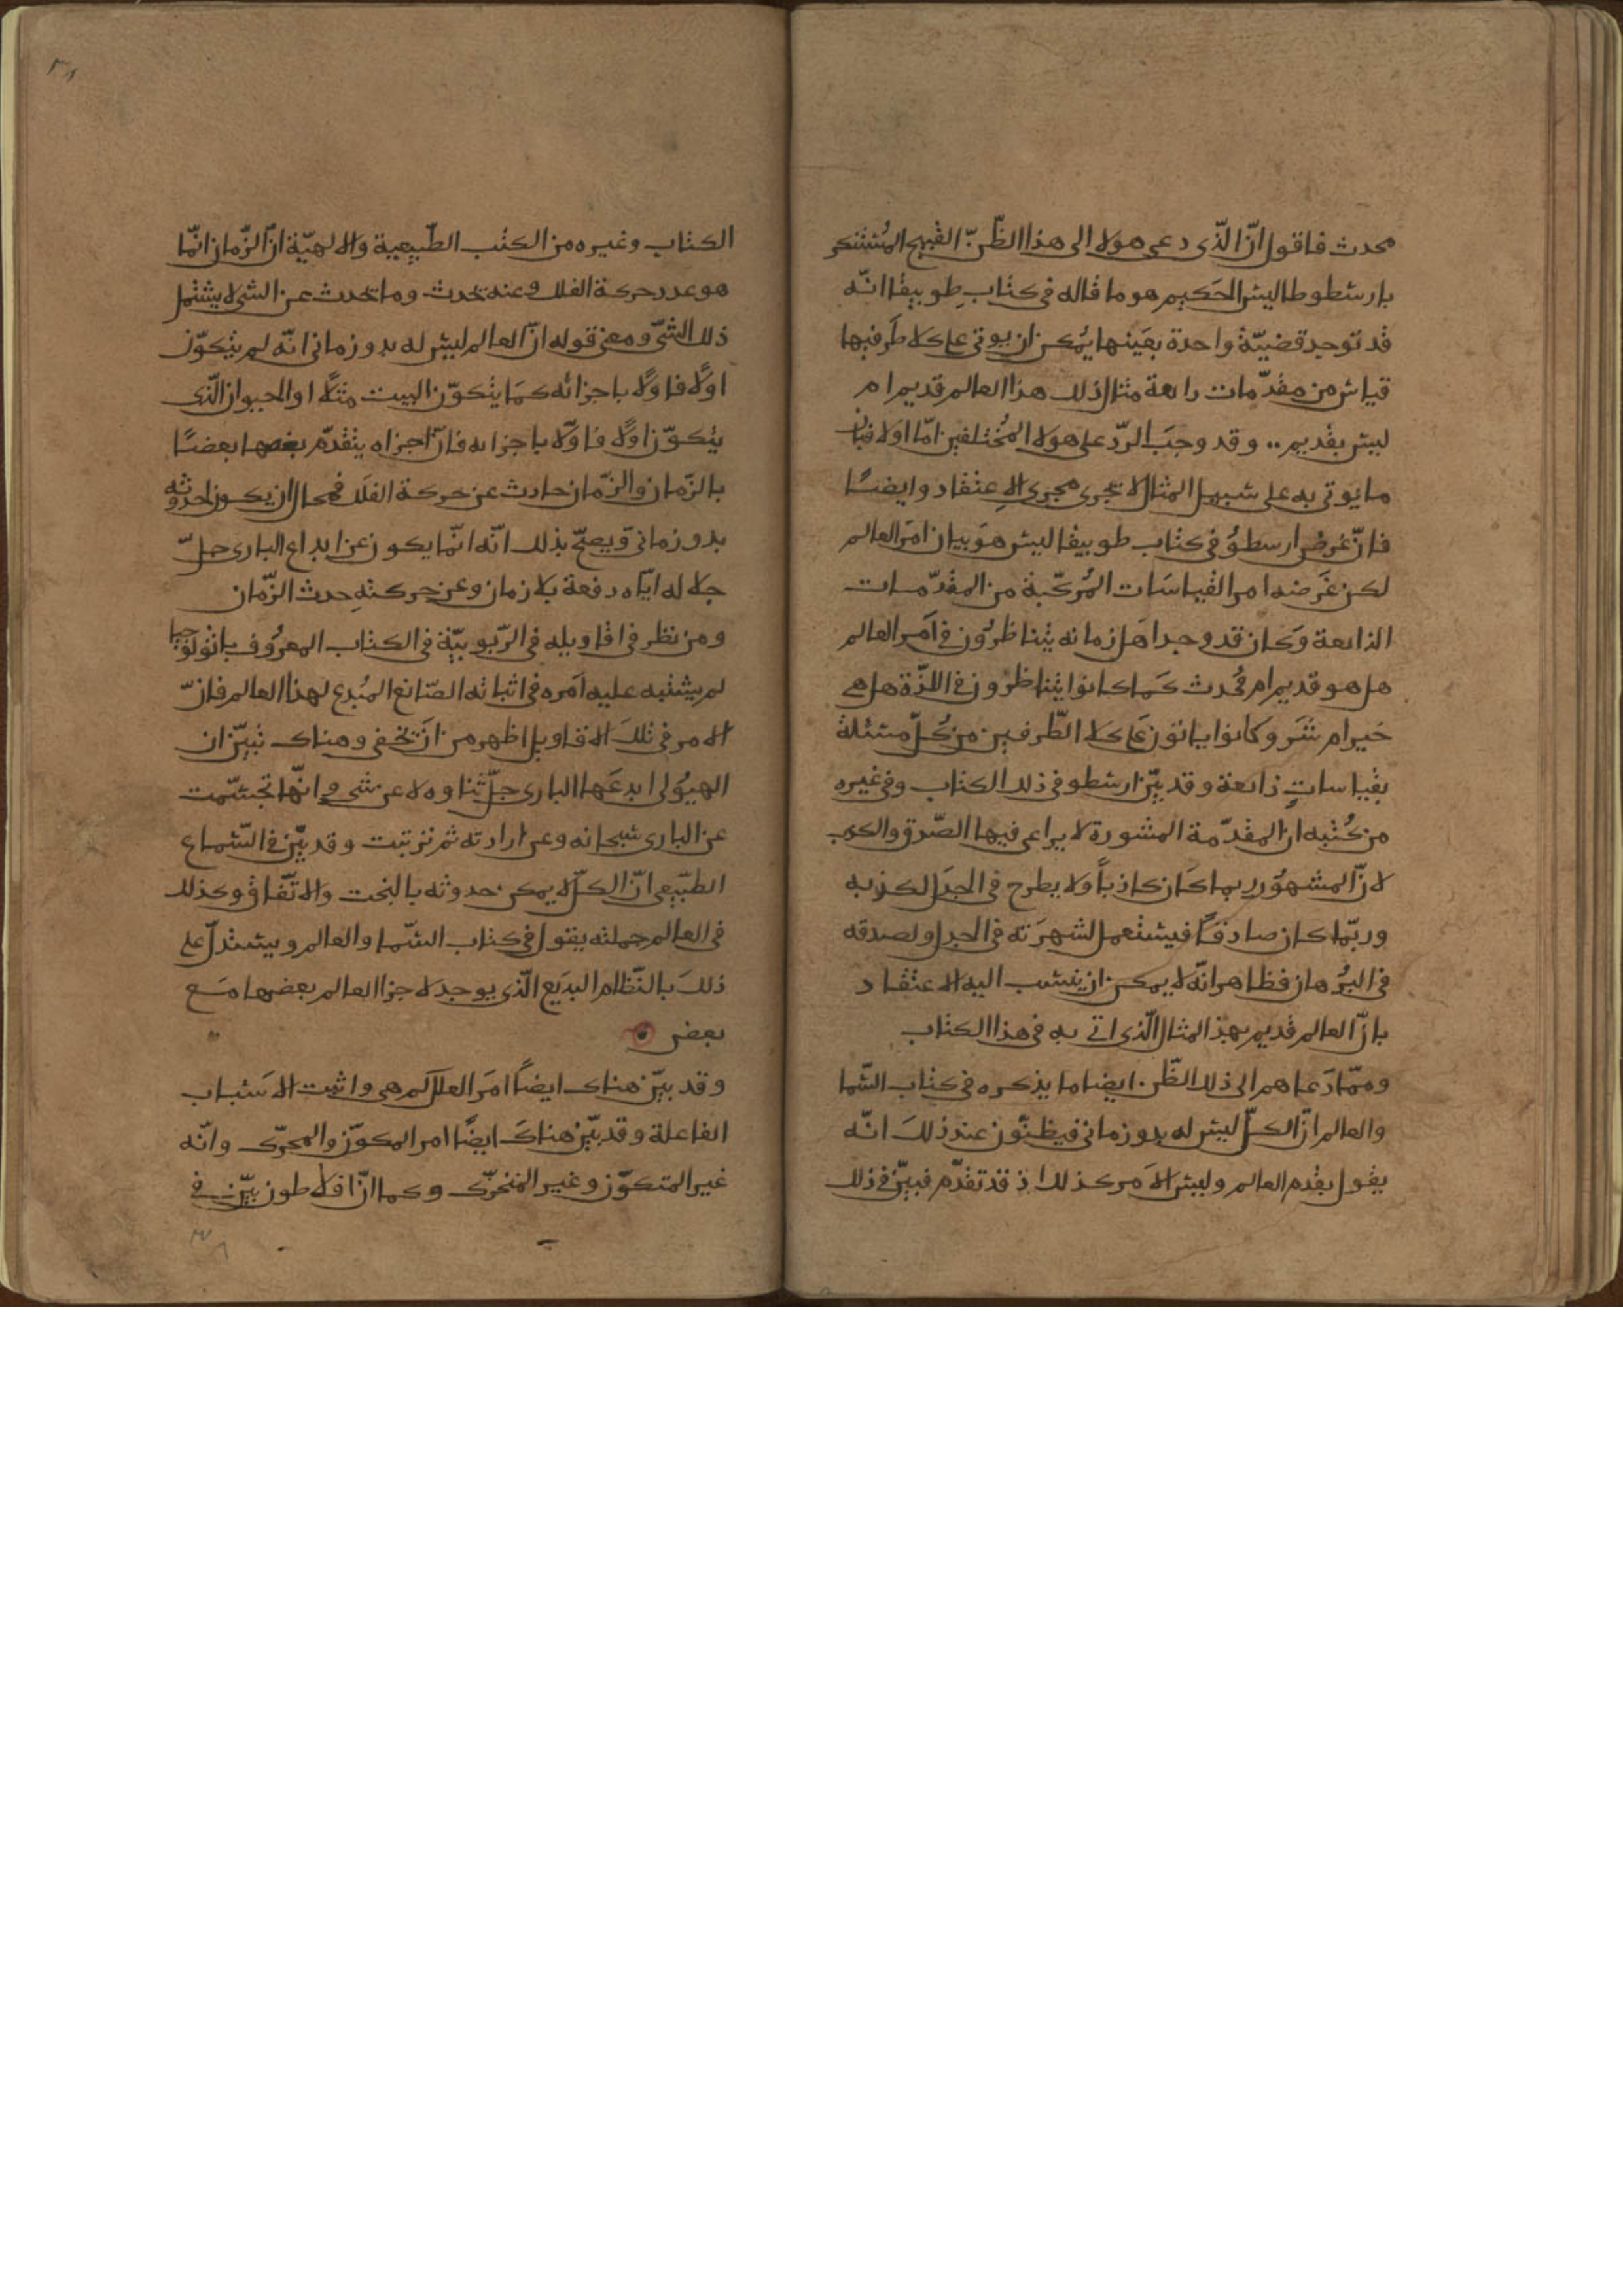 محدث فاقول انّ الّذى دعى هولا الى هذا الظّنّ القبيح المُستنكر
بارسطوطاليس الحَكيم هو ما قاله فى كتاب طوبيقا انّه
قد توجد قضيّة واحدة بعَينها يُمكن ان يوتى على كلا طَرفيها
قياس من مقدّمات ذايعة مثال ذلك هذا العالم قديم ام
ليس بقديم .. وقد وجبَ الردّ على هولا المُختلفين امّا اوّلا فبان
ما يوتى به على سبيل المثال لا تجرى مجرى الاعتقاد وايضًا
فانّ غرض ارسطوُ فى كتاب طوبيقا ليس هوَ بيان امَر العالم
لكن غَرضه امر القياسَات المُركّبة من المقدّمات
الذايعة وَكان قد وجد اهَل زمانه يتناظرُون فى اَمر العالم
هل هو قديم ام مُحدث كَما كانوا يتناظرون فى اللذّة هل هى
خَير ام شَر وكانوا ياتون عَلى كلا الطّرفين من كُلّ مسئلة
بقياساتٍ ذايعة وقد بيّن ارسطو فى ذلك الكتاب وفى غيره
من كُتبه ان المقدّمة المشهورة لا يراعى فيها الصّدق والكذب
لانّ المشهُور ربما كَان كاذباً ولا يطرح فى الجدَل لكذبه
وربّما كان صادقاً فيستعمل لشهرَته فى الجدل ولصدقه
فى البرُهان فظاهر انّه لا يمكن ان ينسَب اليه الاعتقاد
بانّ العالم قديم بهذا المثال الّذى اتى به فى هذا الكتاب
وممّا دَعاهم الى ذلك الظّن ايضا ما يذكره فى كتاب السّما
والعالم انّ الكلّ ليس له بدو زمانى فيظنّون عند ذلكَ انّه
يقول بقدم العالم وليس الامَر كذلك اذ قد تقدّم فبيّن فى ذلك
٣٨
الكتاب وغيره من الكتب الطّبيعية والالهيّة انّ الزّمان انّما
هو عدد حركة الفلك وعنه تحدث وما تحدث عن الشى لا يشتمل
ذلك الشّى ومعنى قوله انّ العالم ليس له بدو زمانى انّه لم يتكوّن
اوّلاً فاوّلاً باجزائه كمَا يتكوّن البيت مثلاً او الحيوان الّذى
يتكوّن اوّلاً فاوّلاً باجزائه فانّ اجزاه يتقدّم بعضها بعضًا
بالزّمان والزّمان حادث عن حركة الفلَك فمحال ان يكون لحدوثه
بدو زمانى وَيصحّ بذلك انّه انّما يكون عن ابداع البارى جلّ
جلاله ايّاه دفعة بلا زمان وعن حركتهِ حدث الزّمان
ومن نظر فى اقاويله فى الرّبوبيّة فى الكتاب المعرُوف باثولوجيا
لم يشتبه عليه اَمره فى اثباته الصّانع المبُدع لهذا العالم فانّ
الامر فى تلكَ الاقاويل اظهر من ان تخفى وهناك تبيّن ان
الهيوُلى ابدعَها البارى جلّ ثناوه لا عن شى وانّها تجسّمت
عن البارى سُبحانه وعن ارادته ثم ترتبت وقد بيّن فى السّماع
الطبّيعى انّ الكلّ لا يمكن حدوثه بالبخت والاتّفاق وكذلك
فى العالم جملته يقول فى كتاب السّما والعالم ويستدلّ على
ذلكَ بالنّظام البدَيع الّذى يوجد لاجزا العالم بعضها مَع
بعض
وقد بيّن هناك ايضاً امَر العلل كم هى واثبت الاسَباب
الفاعلة وقد بيّن هناكَ ايضًا امر المكوّن والمحرّك وانّه
غير المتكوّن وغير المتحرّك وكما انّ افلاطون بيّن فى
٣٨